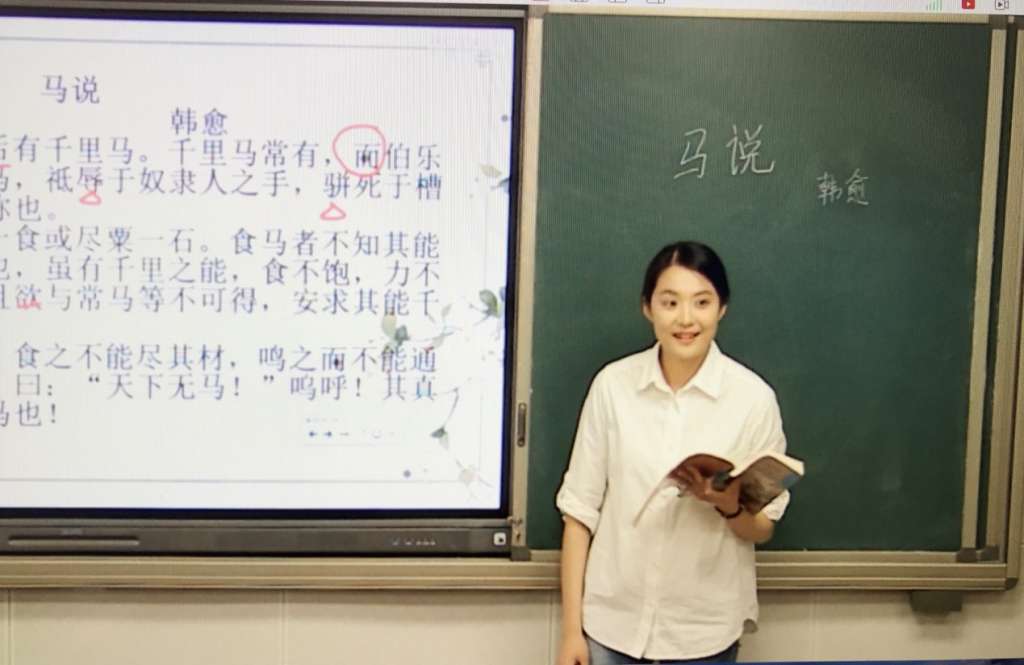 马说
韩愈
后有千里马。千里马常有，而伯乐
马，祗辱于奴隶人之手，骈死于槽
称也。
一食或尽粟一石。食马者不知其能
也，虽有千里之能，食不饱，力不
且欲与常马等不可得，安求其能千
食之不能尽其材，鸣之而不能通
曰：“天下无马！”呜呼！其真
马也！
马说
韩愈